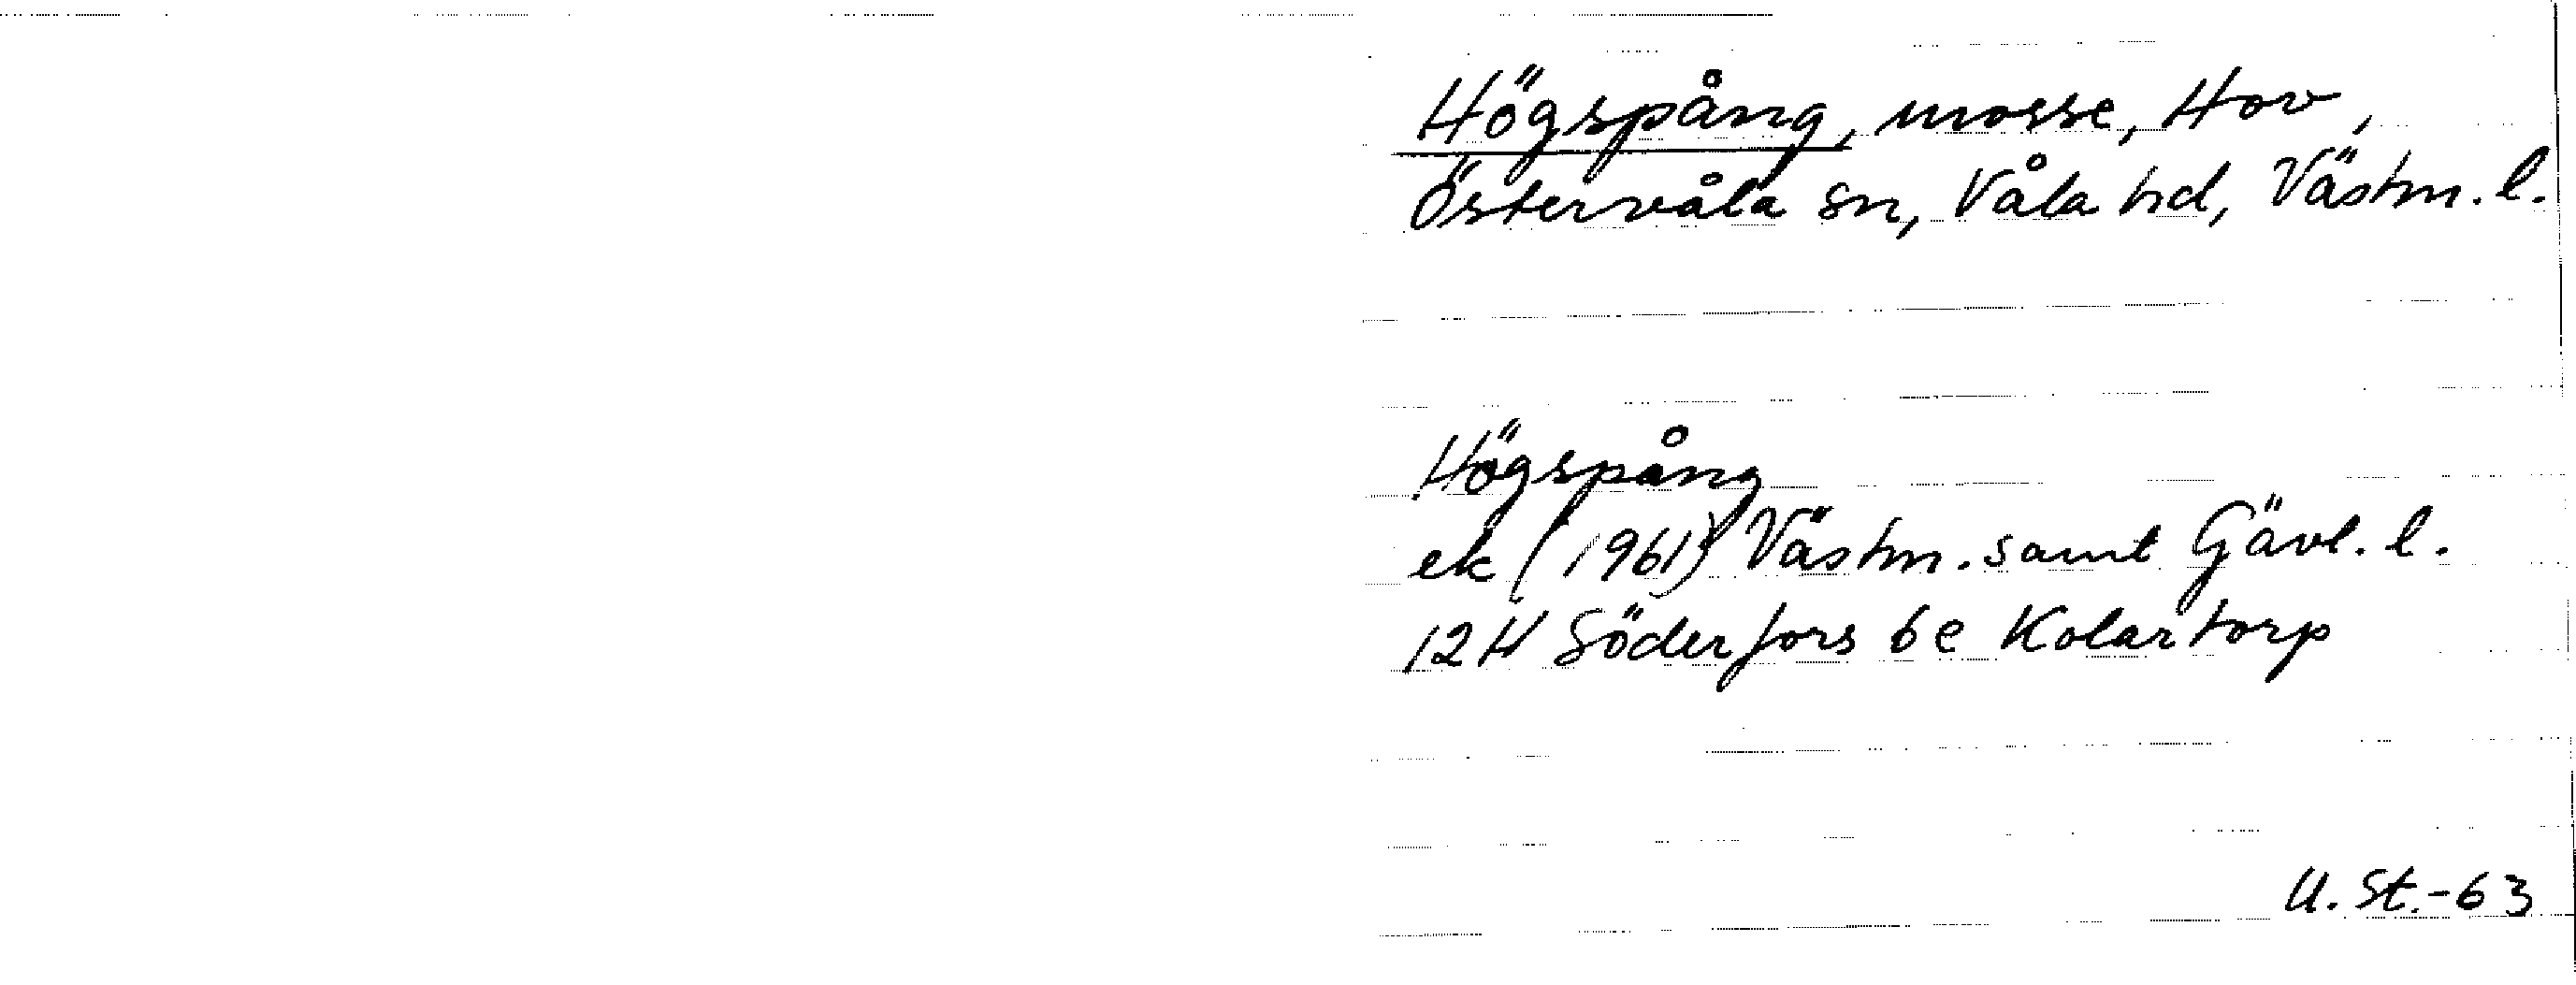 Högspång, mosse, Hov,
Östervåla sn, Våla hd, Västm. l.
Högspång
ek (1961) Västm. samt Gävl. l.
12H Söderfors 6e Kolartorp
U. St.-63